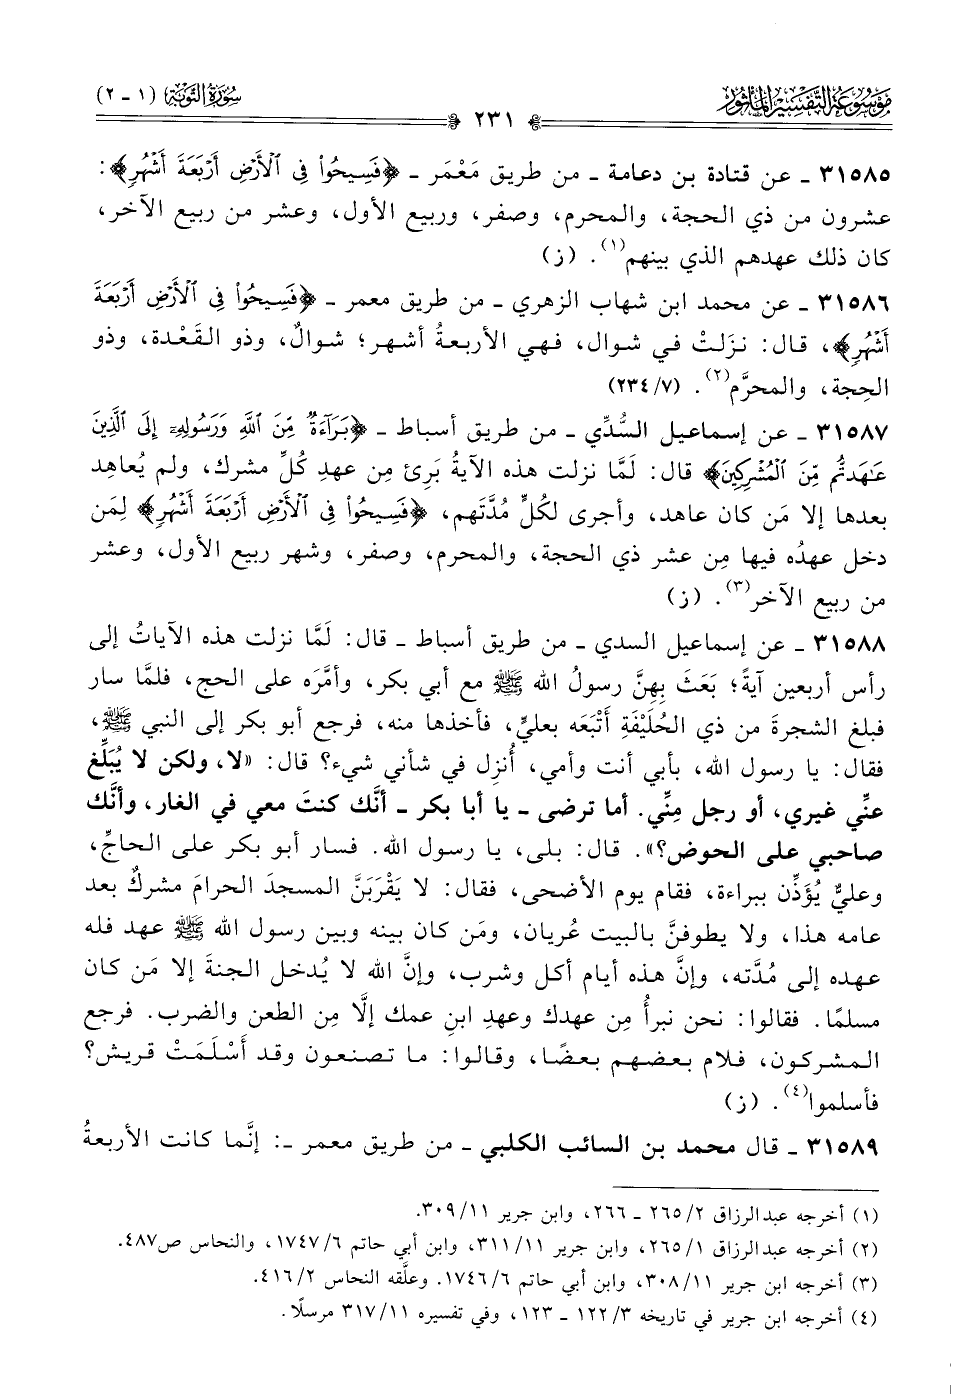 موسوعة التفسير المأثور
٢٣١
سورة التوبة (١ - ٢)
٣١٥٨٥ - عن قتادة بن دعامة - من طريق مَعْمَر - ﴿فَسِيحُوا۟ فِى ٱلْأَرْضِ أَرْبَعَةَ أَشْهُرٍ﴾:
عشرون من ذي الحجة، والمحرم، وصفر، وربيع الأول، وعشر من ربيع الآخر،
كان ذلك عهدهم الذي بينهم(١). (ز)
٣١٥٨٦ - عن محمد ابن شهاب الزهري - من طريق معمر - ﴿فَسِيحُوا۟ فِى ٱلْأَرْضِ أَرْبَعَةَ
أَشْهُرٍ﴾، قال: نزَلتْ في شوال، فهي الأربعةُ أشهر؛ شوالٌ، وذو القَعْدة، وذو
الحِجة، والمحرَّم(٢). (٧/٢٣٤)
٣١٥٨٧ - عن إسماعيل السُّدِّي - من طريق أسباط - ﴿بَرَآءَةٌ مِّنَ ٱللَّهِ وَرَسُولِهِۦٓ إِلَى ٱلَّذِينَ
عَـٰهَدتُّم مِّنَ ٱلْمُشْرِكِينَ﴾ قال: لَمَّا نزلت هذه الآيةُ بَرِئ مِن عهدِ كُلِّ مشرك، ولم يُعاهِد
بعدها إلا مَن كان عاهد، وأجرى لكُلٍّ مُدَّتَهم، ﴿فَسِيحُوا۟ فِى ٱلْأَرْضِ أَرْبَعَةَ أَشْهُرٍ﴾ لِمَن
دخل عهدُه فيها مِن عشر ذي الحجة، والمحرم، وصفر، وشهر ربيع الأول، وعشر
من ربيع الآخر(٣). (ز)
٣١٥٨٨ - عن إسماعيل السدي - من طريق أسباط - قال: لَمَّا نزلت هذه الآياتُ إلى
رأس أربعين آيةً؛ بَعَثَ بِهِنَّ رسولُ الله ﷺ مع أبي بكر، وأمَّرَه على الحج، فلمَّا سار
فبلغ الشجرةَ من ذي الحُلَيْفَةِ أَتْبَعَه بعليٍّ، فأخذها منه، فرجع أبو بكر إلى النبي ﷺ،
فقال: يا رسول الله، بأبي أنت وأمي، أُنزِل في شأني شيء؟ قال: «لا، ولكن لا يُبَلِّغ
عنِّي غيري، أو رجل مِنِّي. أما ترضى - يا أبا بكر - أنَّك كنتَ معي في الغار، وأنَّك
صاحبي على الحوض؟». قال: بلى، يا رسول الله. فسار أبو بكر على الحاجِّ،
وعليٌّ يُؤَذِّن ببراءة، فقام يوم الأضحى، فقال: لا يَقْرَبَنَّ المسجدَ الحرامَ مشركٌ بعد
عامه هذا، ولا يطوفنَّ بالبيت عُريان، ومَن كان بينه وبين رسول الله ﷺ عهد فله
عهده إلى مُدَّته، وإنَّ هذه أيام أكل وشرب، وإنَّ الله لا يُدخل الجنةَ إلا مَن كان
مسلمًا. فقالوا: نحن نبرأُ مِن عهدك وعهدِ ابنِ عمك إلَّا مِن الطعن والضرب. فرجع
المشركون، فلام بعضهم بعضًا، وقالوا: ما تصنعون وقد أَسْلَمَتْ قريش؟
فأسلموا(٤). (ز)
٣١٥٨٩ - قال محمد بن السائب الكلبي - من طريق معمر -: إنَّما كانت الأربعةُ
(١) أخرجه عبدالرزاق ٢/ ٢٦٥ - ٢٦٦، وابن جرير ١١/ ٣٠٩.
(٢) أخرجه عبدالرزاق ١/ ٢٦٥، وابن جرير ١١/ ٣١١، وابن أبي حاتم ٦/ ١٧٤٧، والنحاس ص٤٨٧.
(٣) أخرجه ابن جرير ١١/ ٣٠٨، وابن أبي حاتم ٦/ ١٧٤٦. وعلَّقه النحاس ٢/ ٤١٦.
(٤) أخرجه ابن جرير في تاريخه ٣/ ١٢٢ - ١٢٣، وفي تفسيره ١١/ ٣١٧ مرسلًا.